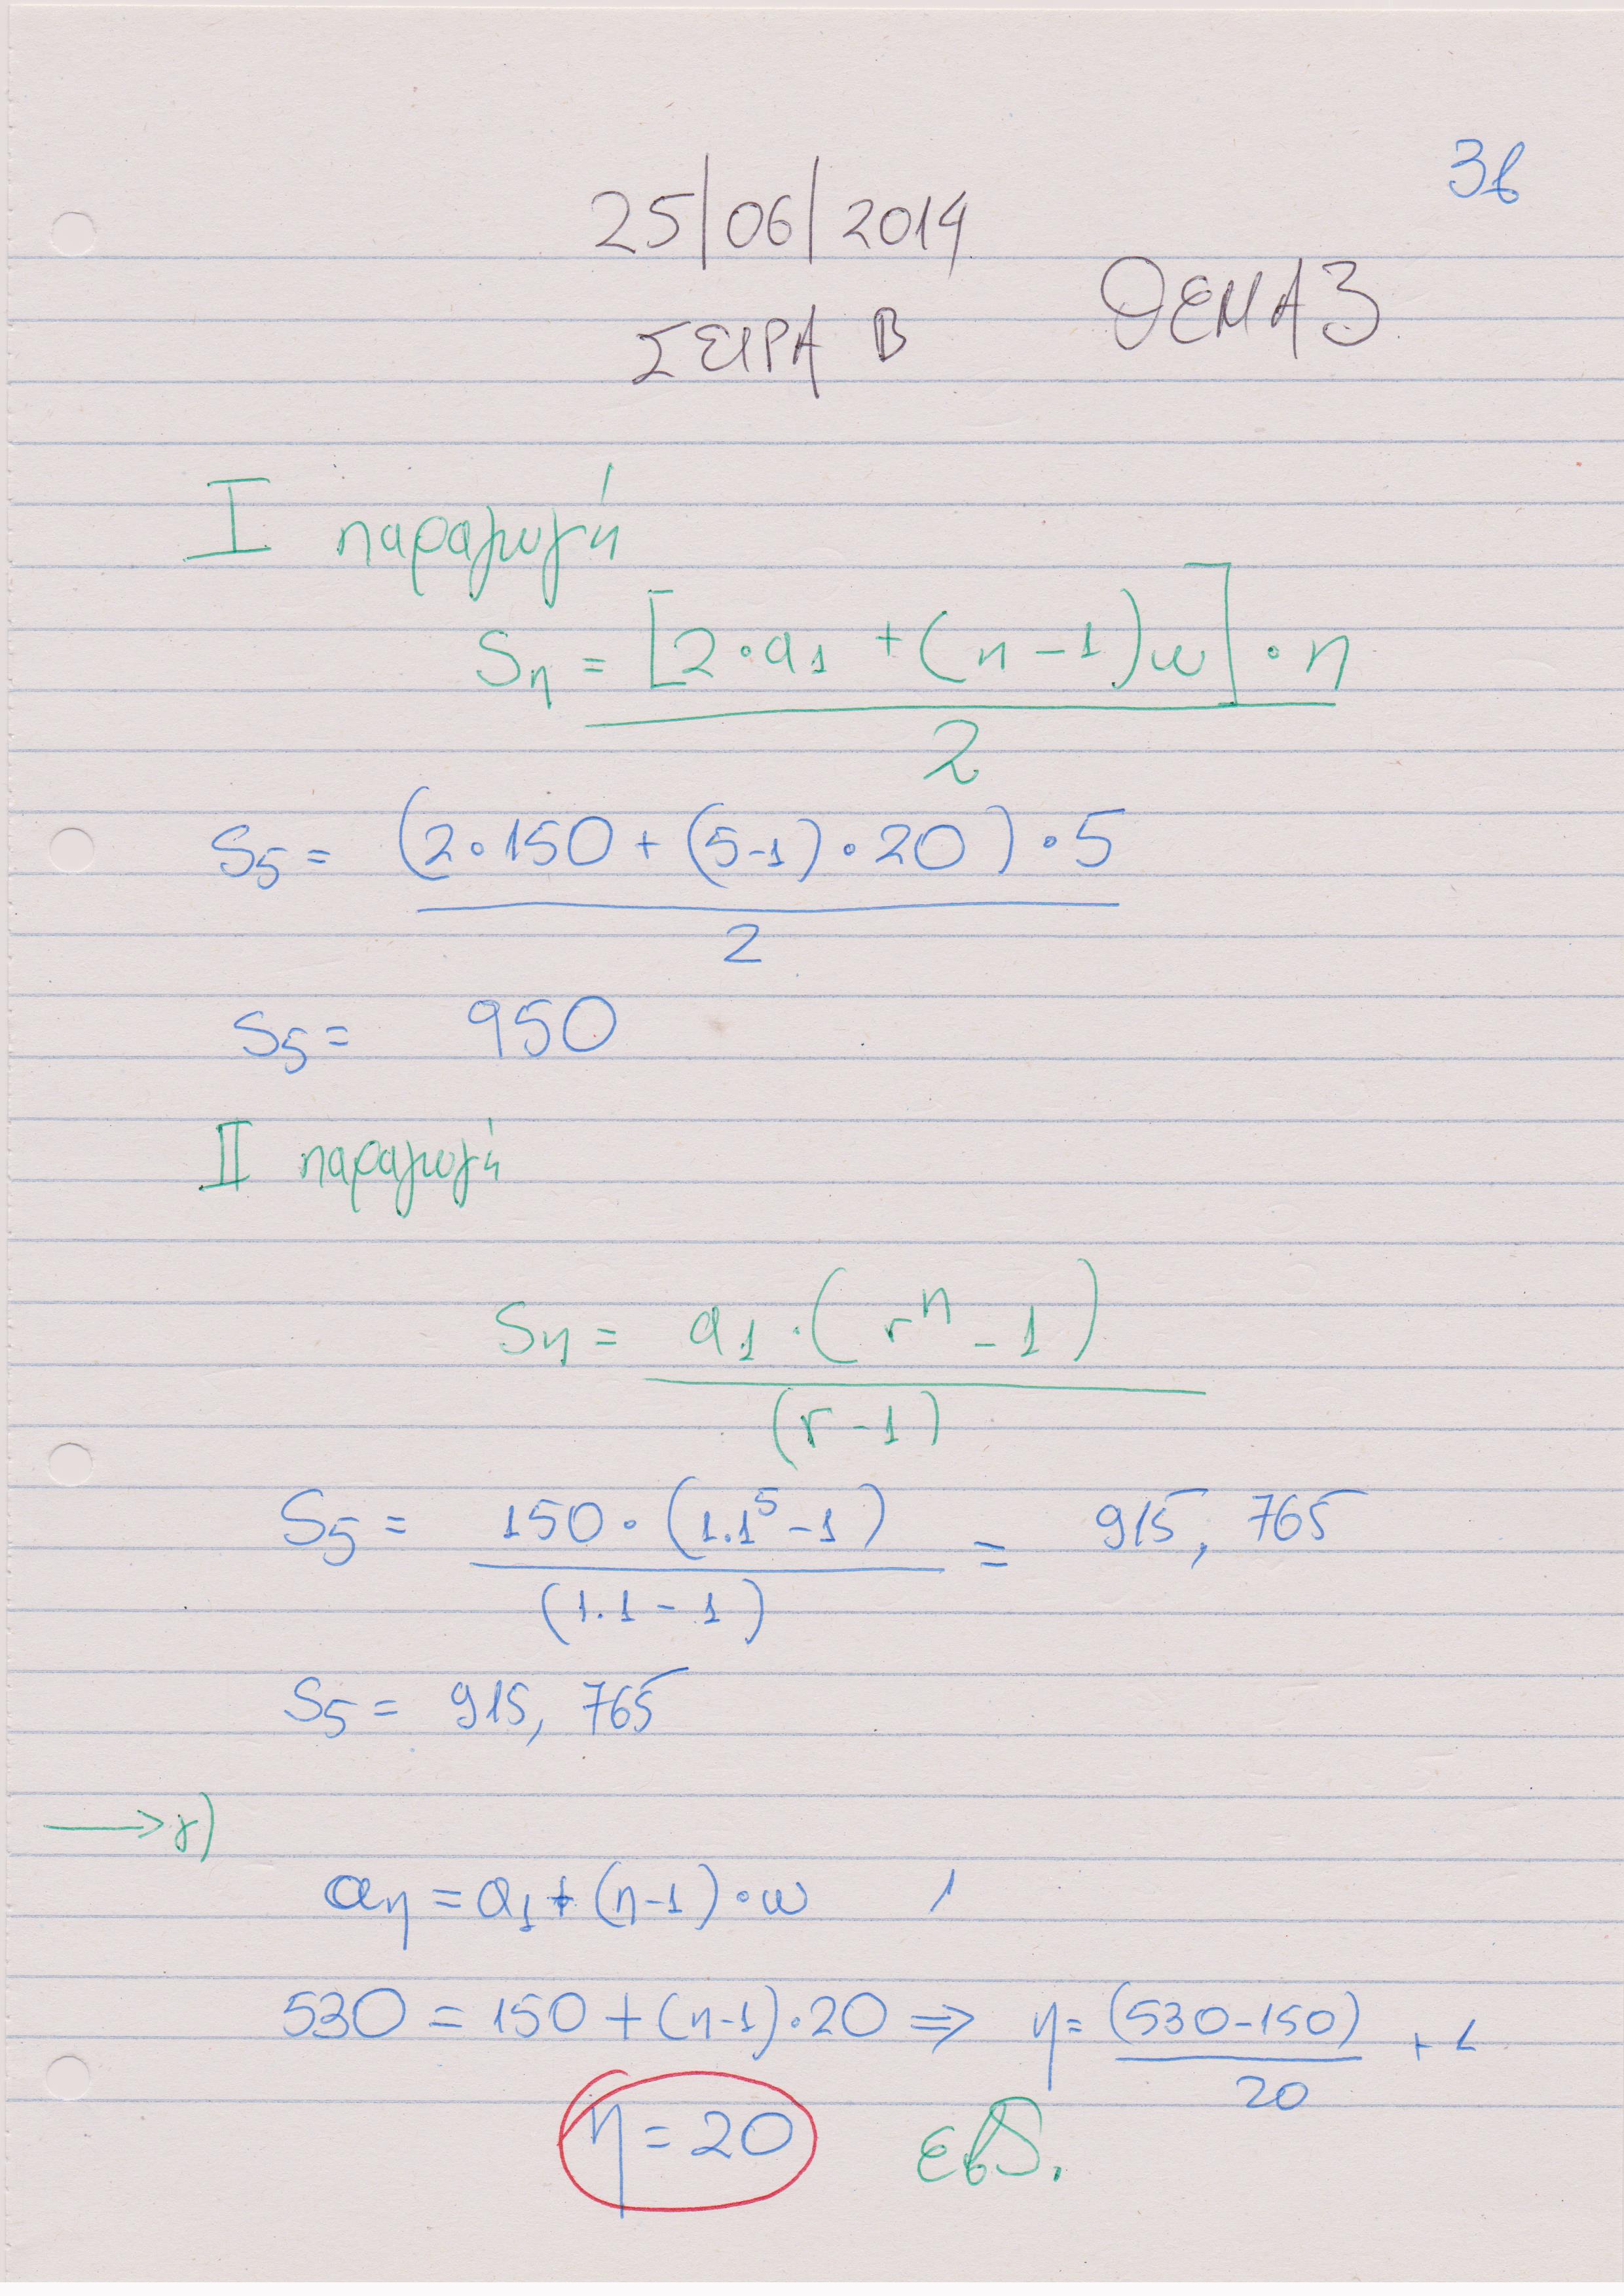 3β
25/06/2014
ΣΕΙΡΑ Β ΘΕΜΑ 3
I παραγωγή
Sη = [2·α1 + (η-1)ω]·η / 2
S5 = (2·150 + (5-1)·20)·5 / 2
S5 = 950
II παραγωγή
Sη = α1·(r^η - 1) / (r-1)
S5 = 150·(1.1^5 - 1) / (1.1 - 1) = 915,765
S5 = 915,765
→ γ)
αη = α1 + (η-1)·ω
530 = 150 + (η-1)·20 ⇒ η = (530-150) / 20 + 1
η = 20 εβδ.